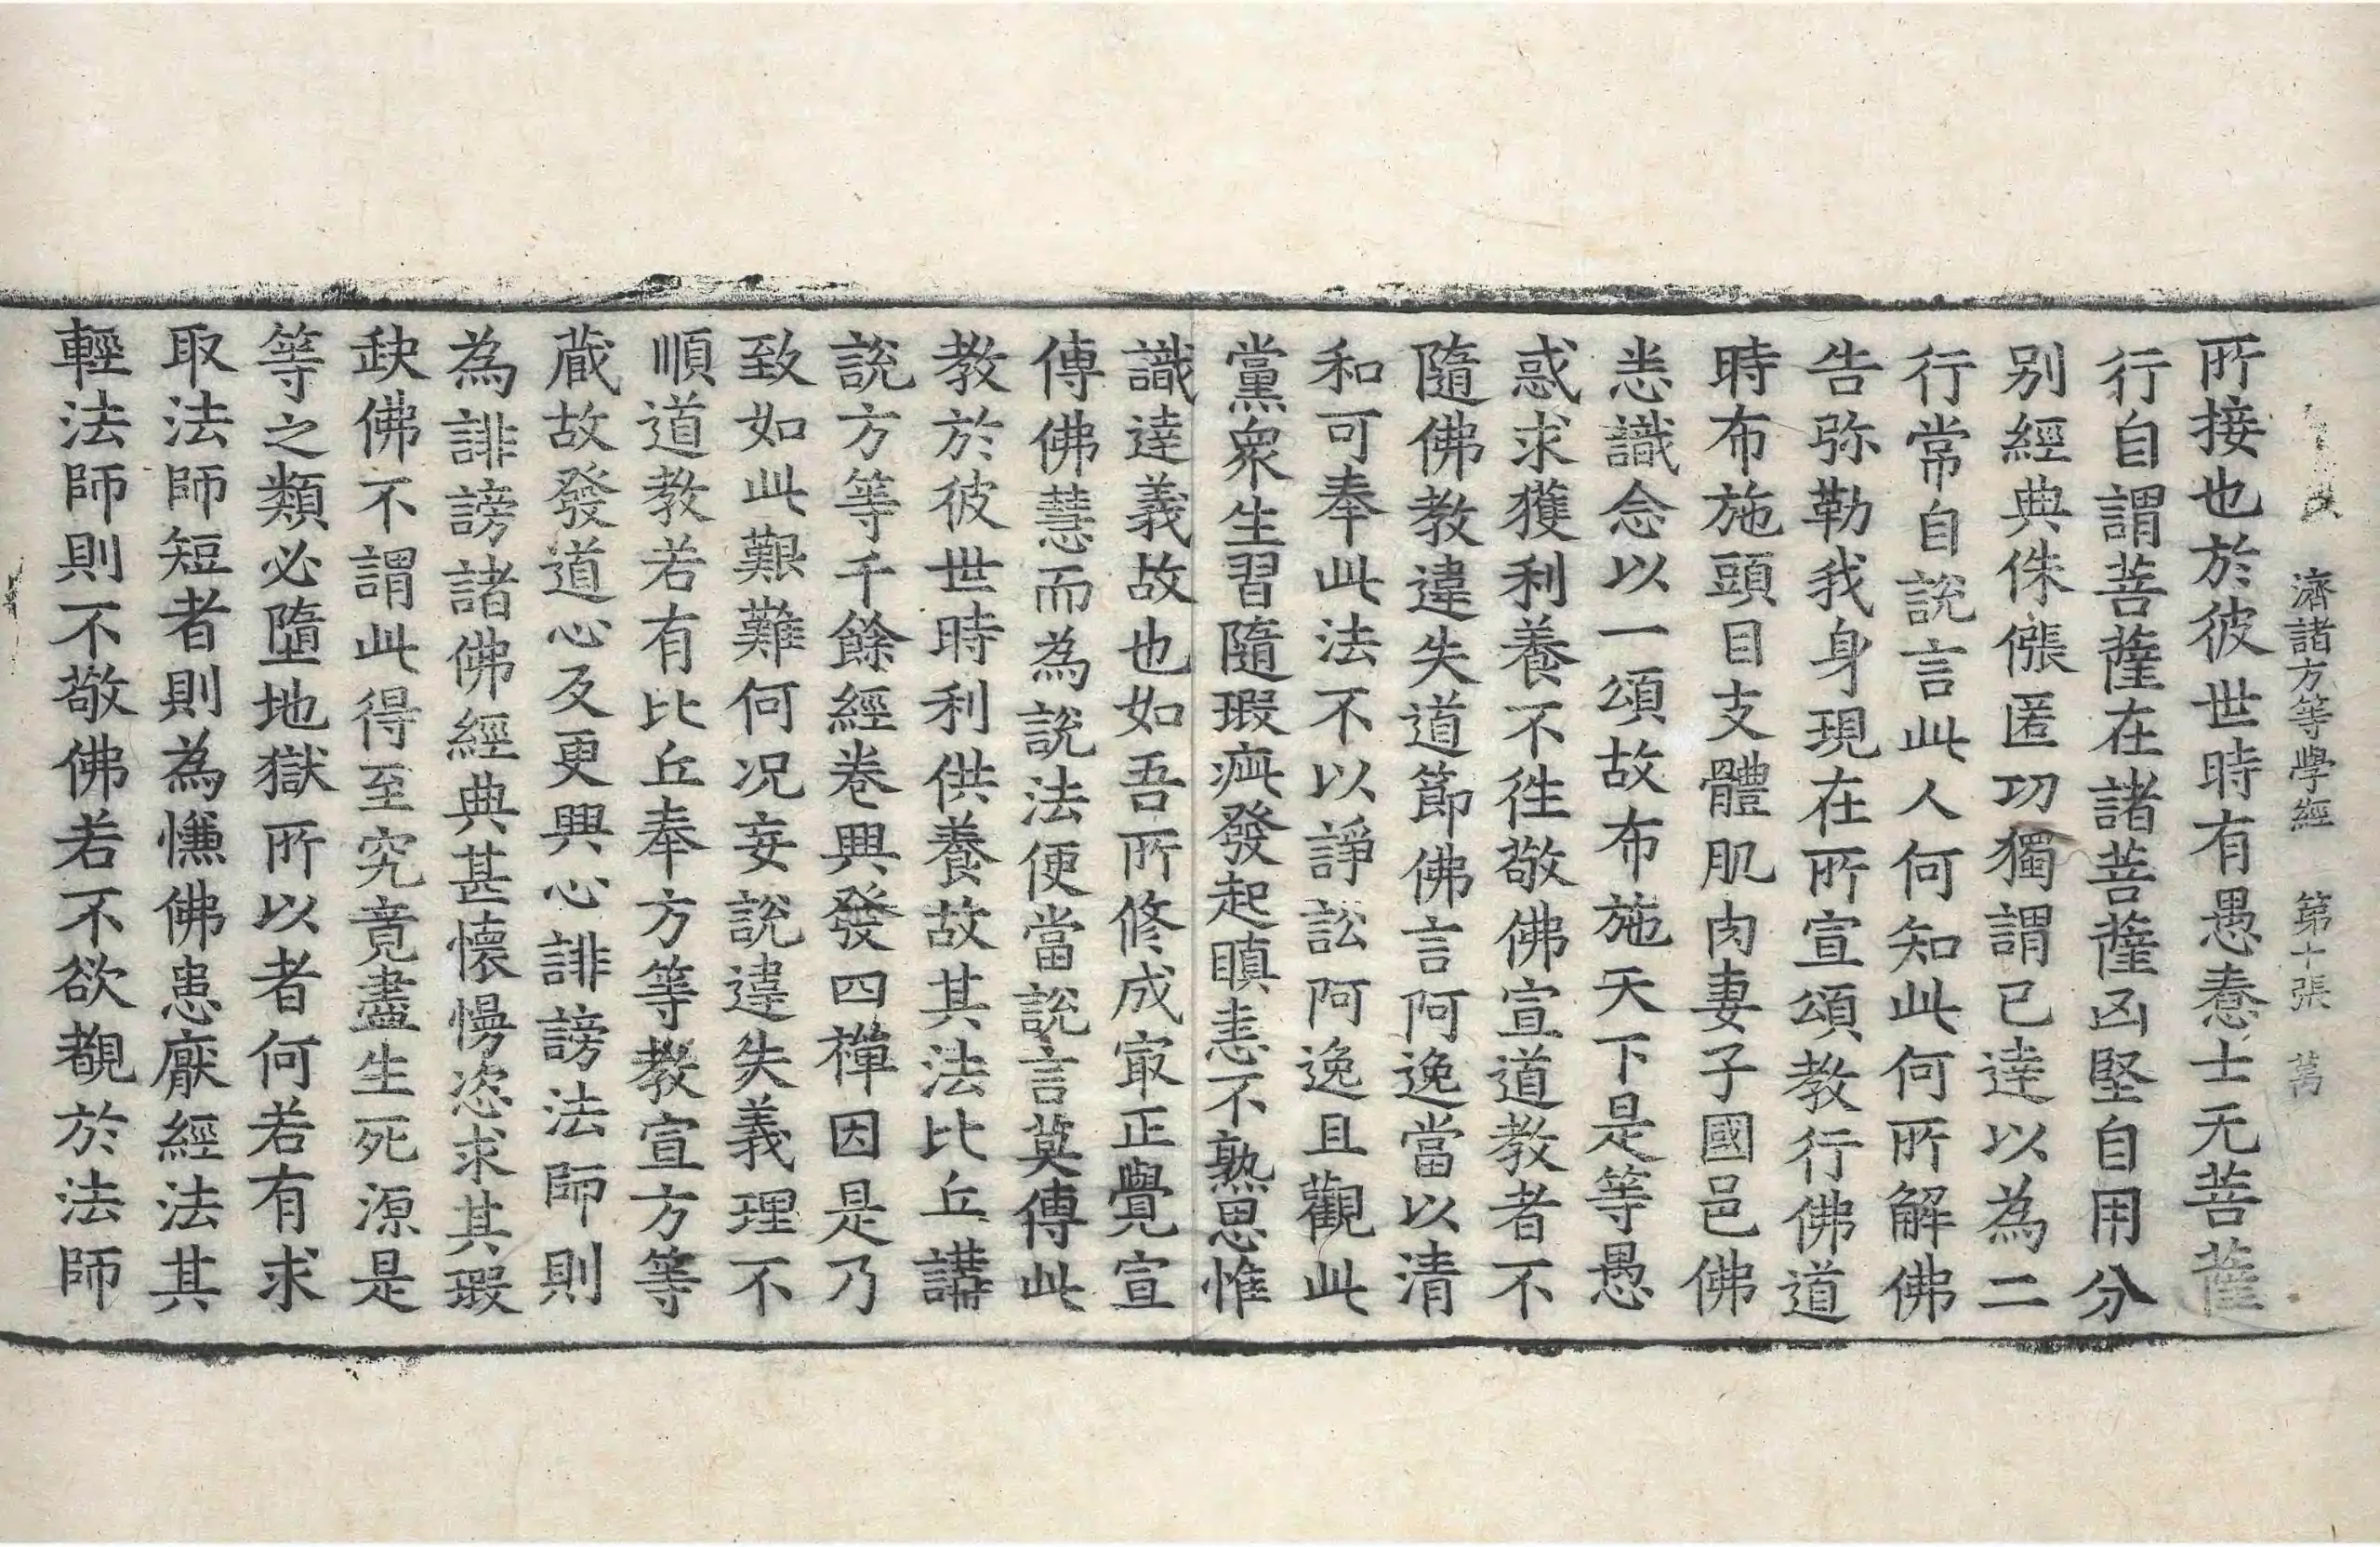 濟諸方等學經 第十張 萬
所接也於彼世時有愚憃士无菩薩
行自謂菩薩在諸菩薩凶堅自用分
別經典侏倀匿功獨謂已達以為二
行常自說言此人何知此何所解佛
告弥勒我身現在所宣頌教行佛道
時布施頭目支體肌肉妻子國邑佛
悉識念以一頌故布施天下是等愚
惑求獲利養不徃敬佛宣道教者不
隨佛教違失道節佛言阿逸當以清
和可奉此法不以諍訟阿逸且觀此
黨衆生習隨瑕疵發起瞋恚不熟思惟
識達義故也如吾所修成冣正覺宣
傳佛慧而為說法便當說言莫傳此
教於彼世時利供養故其法比丘講
說方等千餘經卷興發四禪因是乃
致如此艱難何况妄說違失義理不
順道教若有比丘奉方等教宣方等
藏故發道心反更興心誹謗法師則
為誹謗諸佛經典甚懷慢恣求其瑕
缺佛不謂此得至究竟盡生死源是
等之類必墮地獄所以者何若有求
取法師短者則為慊佛患厭經法其
輕法師則不敬佛若不欲覩於法師